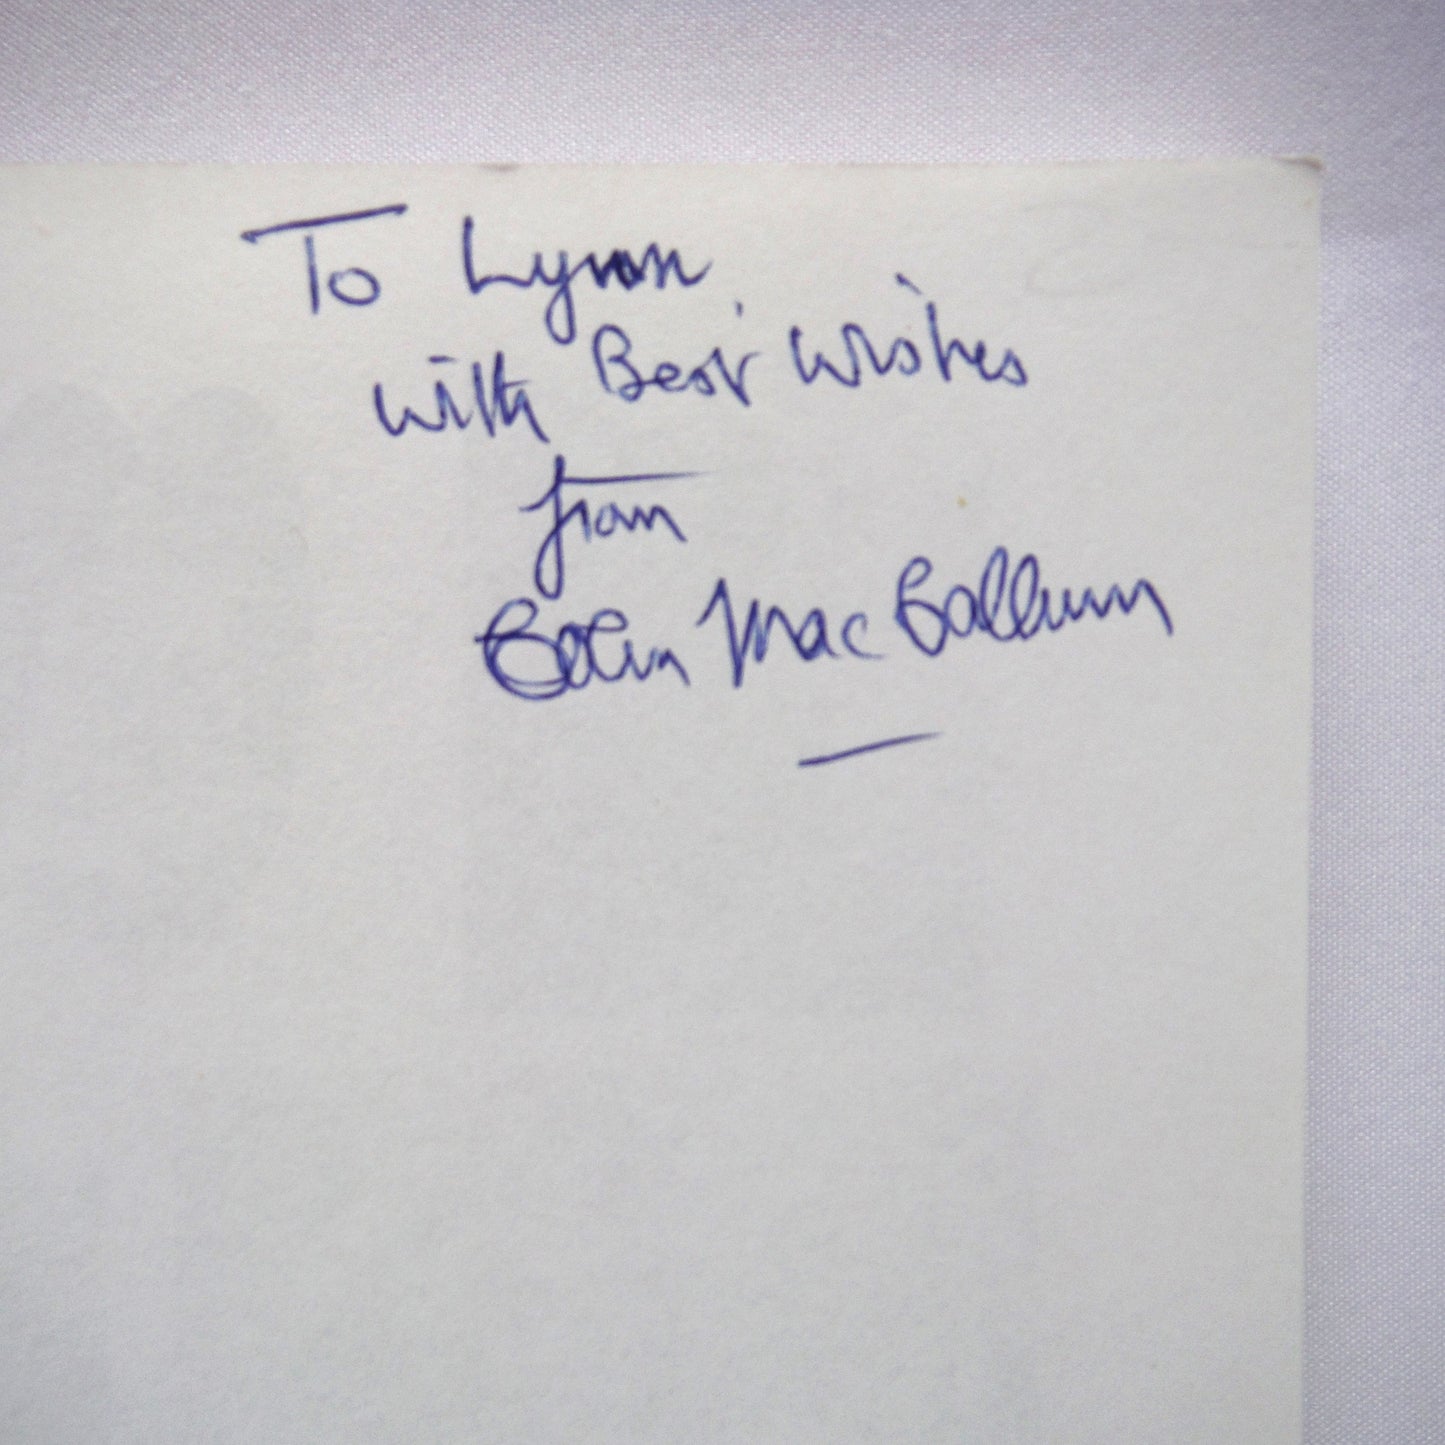 To Lynn
with Best Wishes
from
Colin MacCallum